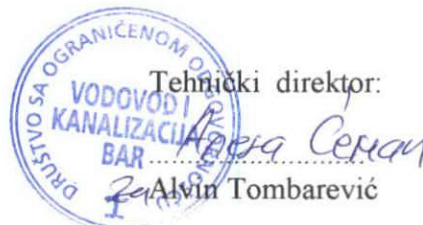 DRUŠTVO SA OGRANIČENOM ODGOVORNOŠĆU
VODOVOD I
KANALIZACIJA
BAR
1
Tehnički direktor:
za Alvin Tombarević